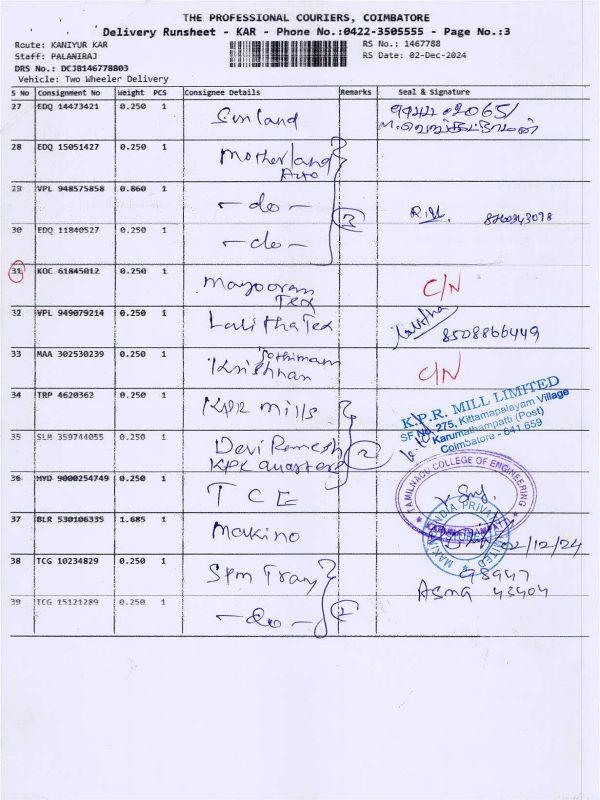 THE PROFESSIONAL COURIERS, COIMBATORE
Delivery Runsheet - KAR - Phone No.:0422-3505555 - Page No.:3
Route: KANIYUR KAR RS No.: 1467788
Staff: PALANIRAJ RS Date: 02-Dec-2024
DRS No.: DCJB146778803
Vehicle: Two Wheeler Delivery
S No Consignment No Weight PCS Consignee Details Remarks Seal & Signature
27 EDQ 14473421 0.250 1
28 EDQ 15051427 0.250 1 Motherland
Auto
29 VPL 948575858 0.860 1 -do- 3 8760343098
30 EDQ 11840527 0.250 1 -do-
31 KOC 61845012 0.250 1 Mayooram
Tex C/N
32 VPL 949079214 0.250 1 Lalitha Tex Lalitha
8508866449
33 MAA 302530239 0.250 1 Jothimani
Krishnan C/N
34 TRP 4620362 0.250 1 KPR Mills
K.P.R. MILL LIMITED
SF No. 275, Kittampalayam Village
Karumathampatti (Post)
Coimbatore - 641 659
35 SLM 359744055 0.250 1 Devi Ramesh
KPR Quarters 2
36 MYD 9000254749 0.250 1 TCE
TAMILNADU COLLEGE OF ENGINEERING
37 BLR 530106335 1.685 1 Makino
MAKINO INDIA PRIVATE LIMITED
02/12/24
38 TCG 10234829 0.250 1 Spm Tray 98947
39 TCG 15121289 0.250 1 -do- 43404